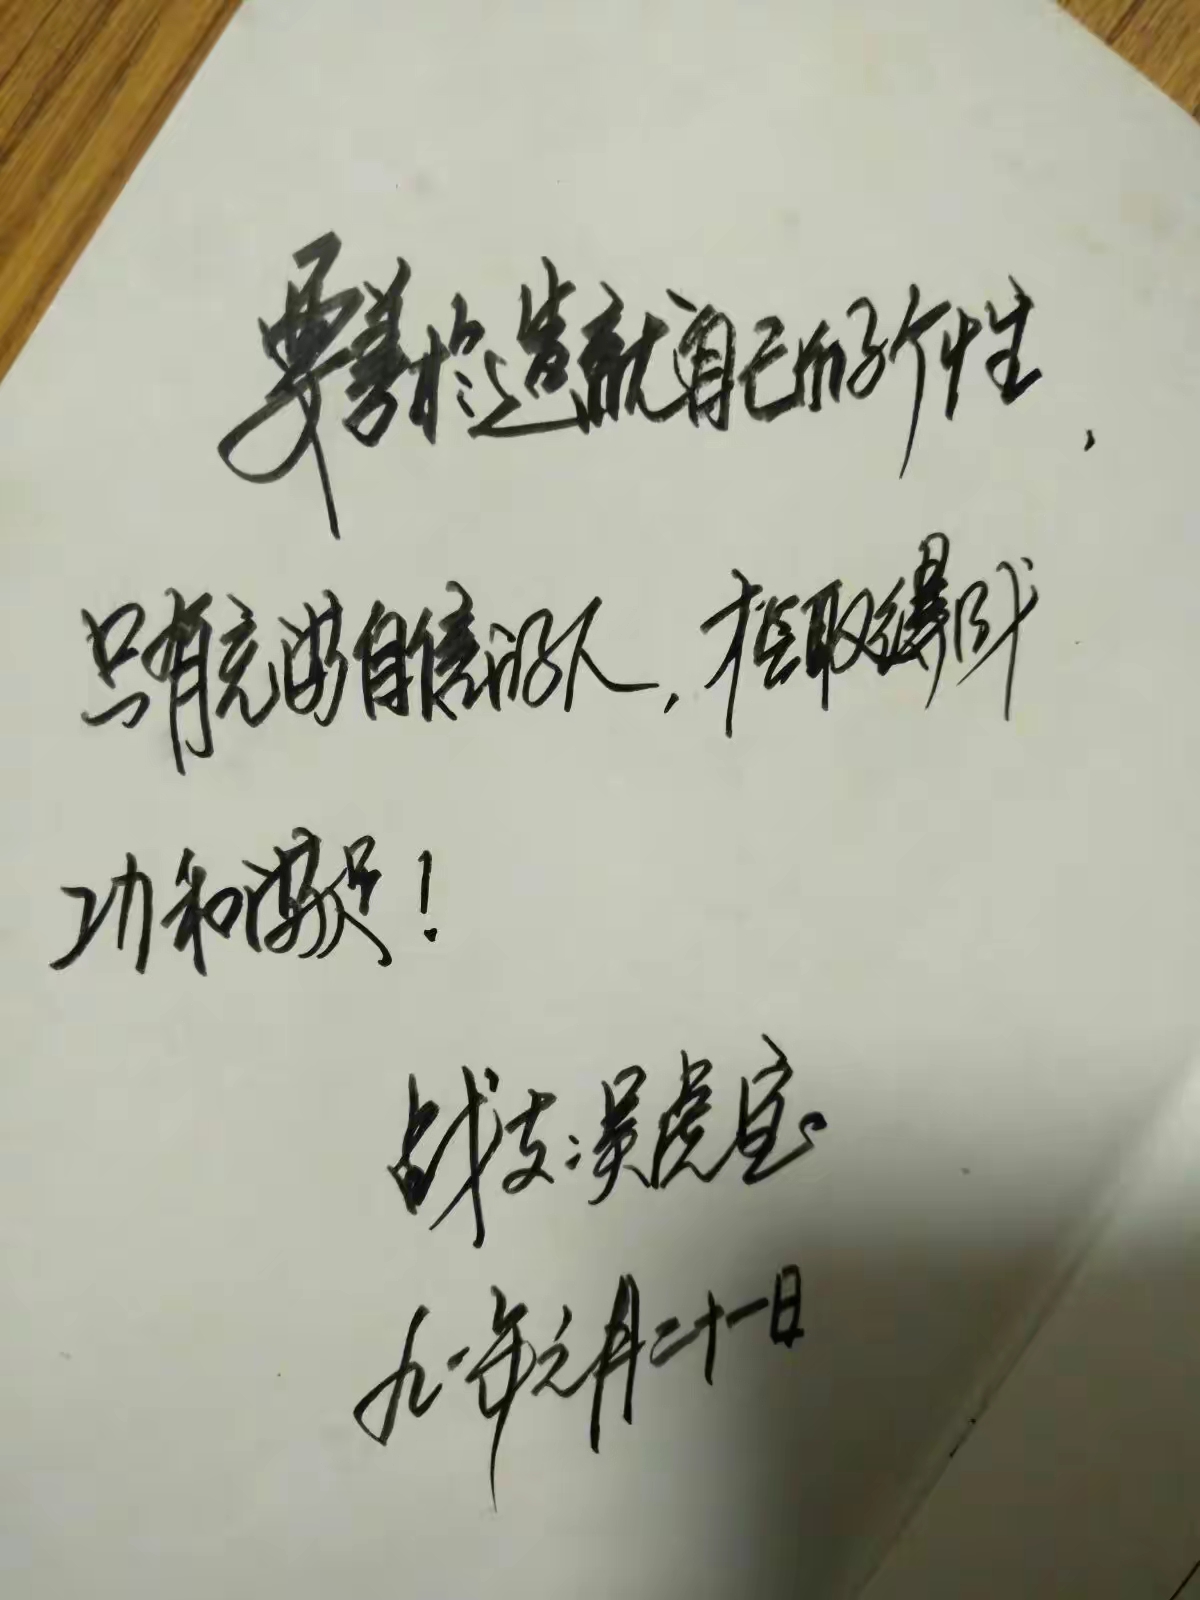 要善於造就自己的个性，
只有充满自信的人，才能取得成
功和满足！
战友：吴虎宝
九一年元月二十一日